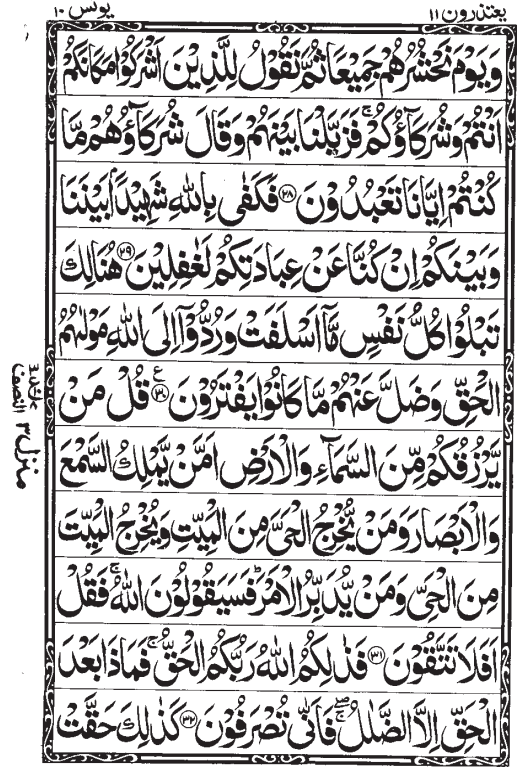 يعتذرون ١١
يونس ١٠
وَيَوْمَ نَحْشُرُهُمْ جَمِيْعًا ثُمَّ نَقُوْلُ لِلَّذِيْنَ اَشْرَكُوْا مَكَانَكُمْ
اَنْتُمْ وَشُرَكَآؤُكُمْ ۚ فَزَيَّلْنَا بَيْنَهُمْ وَقَالَ شُرَكَآؤُهُمْ مَّا
كُنْتُمْ اِيَّانَا تَعْبُدُوْنَ ﴿۲۸﴾ فَكَفٰى بِاللّٰهِ شَهِيْدًۢا بَيْنَنَا
وَبَيْنَكُمْ اِنْ كُنَّا عَنْ عِبَادَتِكُمْ لَغٰفِلِيْنَ ﴿۲۹﴾ هُنَالِكَ
تَبْلُوْا كُلُّ نَفْسٍ مَّاۤ اَسْلَفَتْ وَرُدُّوْۤا اِلَى اللّٰهِ مَوْلٰىهُمُ
الْحَقِّ وَضَلَّ عَنْهُمْ مَّا كَانُوْا يَفْتَرُوْنَ ﴿۳۰﴾ ع قُلْ مَنْ
يَّرْزُقُكُمْ مِّنَ السَّمَآءِ وَالْاَرْضِ اَمَّنْ يَّمْلِكُ السَّمْعَ
وَالْاَبْصَارَ وَمَنْ يُّخْرِجُ الْحَيَّ مِنَ الْمَيِّتِ وَيُخْرِجُ الْمَيِّتَ
مِنَ الْحَيِّ وَمَنْ يُّدَبِّرُ الْاَمْرَ ؕ فَسَيَقُوْلُوْنَ اللّٰهُ ۚ فَقُلْ
اَفَلَا تَتَّقُوْنَ ﴿۳۱﴾ فَذٰلِكُمُ اللّٰهُ رَبُّكُمُ الْحَقُّ ۚ فَمَاذَا بَعْدَ
الْحَقِّ اِلَّا الضَّلٰلُ ۖۚ فَاَنّٰى تُصْرَفُوْنَ ﴿۳۲﴾ كَذٰلِكَ حَقَّتْ
منزل ٣
النصف